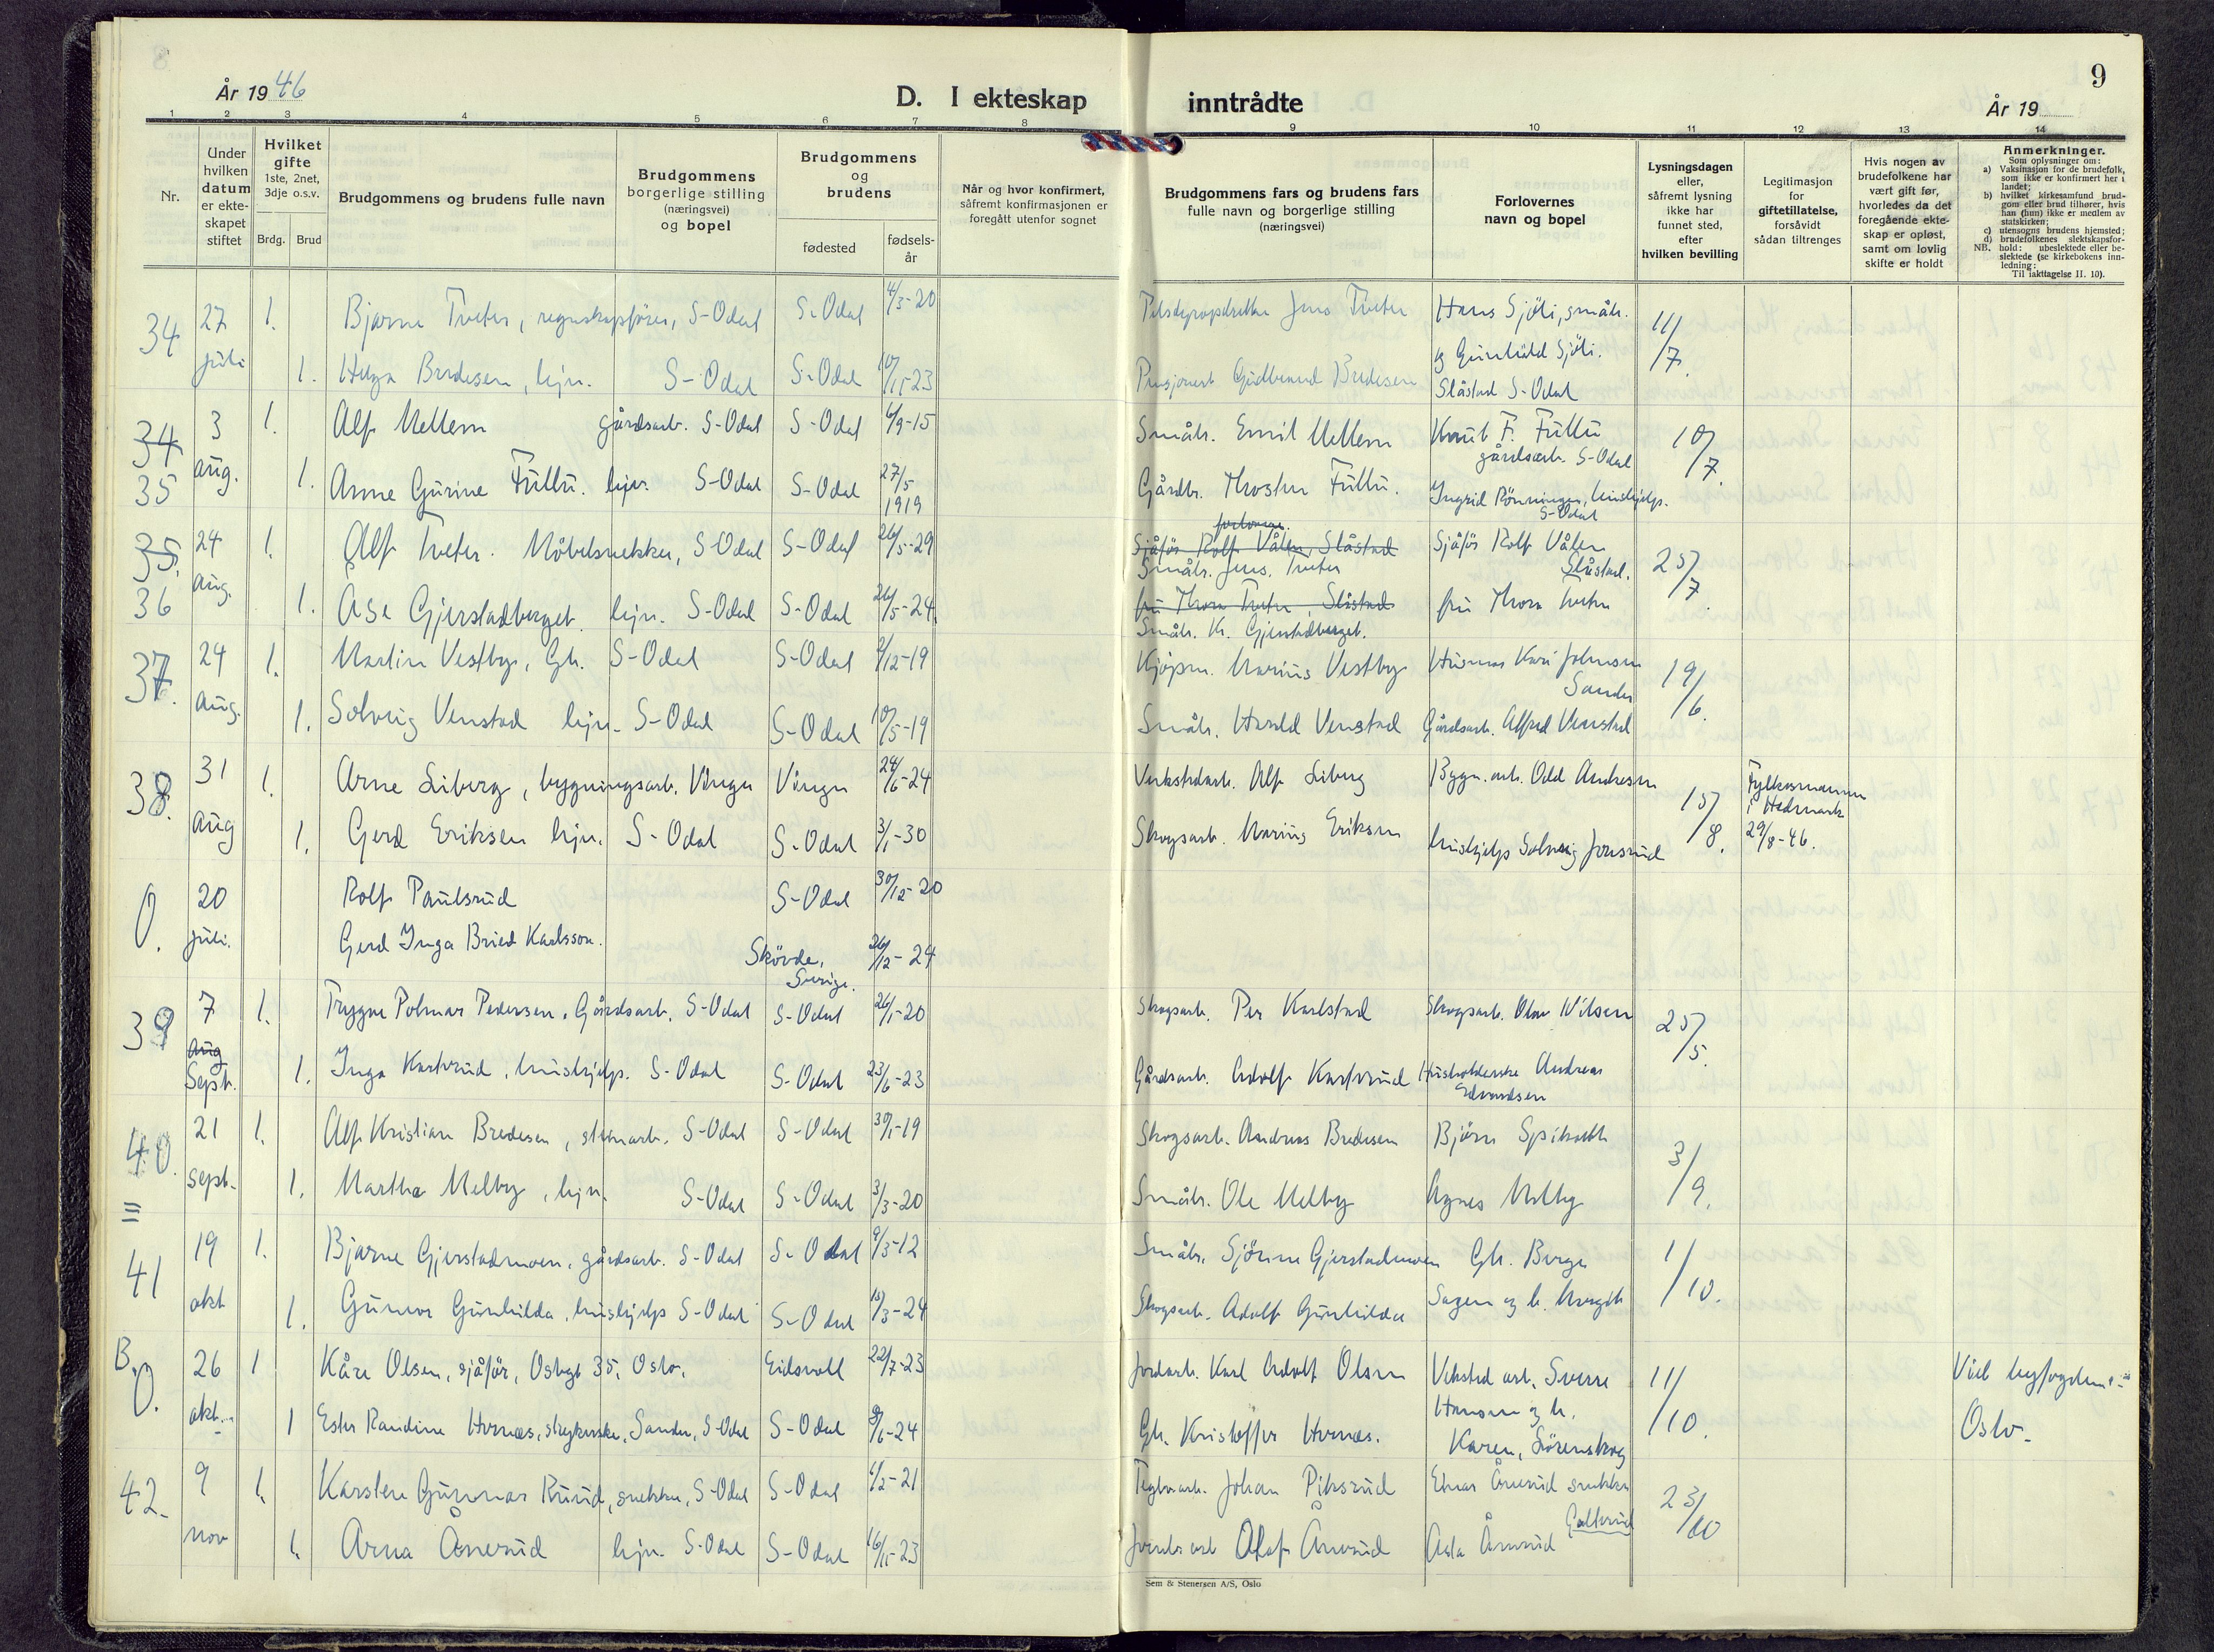 År 1946
D. I ekteskap
inntrådte
9
År 19
1 2 3 4 5 6 7 8 9 10 11 12 13 14
Nr.
Under
hvilken
datum
er ekte-
skapet
stiftet
Hvilket
gifte
1ste, 2net,
3dje o.s.v.
Brdg. Brud
Brudgommens og brudens fulle navn
Brudgommens
borgerlige stilling
(næringsvei)
og bopel
Brudgommens
og
brudens
fødested
fødsels-
år
Når og hvor konfirmert,
såfremt konfirmasjonen er
foregått utenfor sognet
Brudgommens fars og brudens fars
fulle navn og borgerlige stilling
(næringsvei)
Forlovernes
navn og bopel
Lysningsdagen
eller,
såfremt lysning
ikke har
funnet sted,
efter
hvilken bevilling
Legitimasjon
for
giftetillatelse,
forsåvidt
sådan tiltrenges
Hvis nogen av
brudefolkene har
vært gift før,
hvorledes da det
foregående ekte-
skap er opløst,
samt om lovlig
skifte er holdt
Anmerkninger.
Som oplysninger om:
a) Vaksinasjon for de brudefolk,
som ikke er konfirmert her i
landet;
b) hvilket kirkesamfund brud-
gom eller brud tilhører, hvis
han (hun) ikke er medlem av
statskirken;
c) utensogns brudens hjemsted;
d) brudefolkenes slektskapsfor-
NB. hold: ubeslektede eller be-
slektede (se kirkebokens inn-
ledning:
Til iakttagelse II. 10).
34 27 juli 1. Bjarne Tveter, regnskapsfører, S-Odal S-Odal 4/3-20 Jens Tveter Hans Sjöli, småbr. 11/7.
1. Helga Bredesen, hjv. S-Odal S-Odal 10/11-23 Pensjonert Gudbrand Bredesen og Gunhild Sjöli.
Slåstad S-Odal
34 35 3 aug. 1. Alf Mellem gårdsarb. S-Odal S-Odal 6/9-15 Småbr. Emil Mellem Knut F. Fullu 10/7.
gårdsarb. S-Odal
1. Anne Gurine Fullu. hjv. S-Odal S-Odal 27/5 1919 Gårdbr. Thosten Fullu. Ingrid Rönningen, hushjelp.
S-Odal
35. 36 24 aug. 1. Alf Tveter. Möbelsnekker, S-Odal S-Odal 26/5-29 Sjåför Rolf Vålen, Slåstad Sjåför Rolf Vålen 25/7.
Småbr. Jens. Tveter Slåstad.
1. Åse Gjerstadberget. hjv. S-Odal S-Odal 26/5-24. fru Thora Tveter, Slåstad fru Thora Tveter
Småbr. Kr. Gjerstadberget.
37. 24 aug. 1. Martin Vestby, Gb. S-Odal S-Odal 2/12-19 Kjöpm. Marius Vestby Husmor Kari Johnsen 19/6.
Sander
1. Solveig Venstad hjv. S-Odal S-Odal 10/5-19 Småbr. Harald Venstad Gårdsarb. Alfred Venstad
38. 31 aug 1. Arne Liberg, bygningsarb. Vinger Vinger 24/6-24 Verkstedarb. Alf Liberg Bygn.arb. Odd Andresen 15/8. Fylkesmannen
i Hedmark
29/8-46.
1. Gerd Eriksen hjv. S-Odal S-Odal 3/1-30 Skogsarb. Marius Eriksen hushjelp Solveig Jonsrud
0. 20 juli. Rolf Paulsrud S-Odal 30/12-20
Gerd Inga Bried Karlsson. Skövde, 26/12-24
Sverige.
39 7 aug Sept. 1. Trygve Polmar Pedersen, Gårdsarb. S-Odal S-Odal 26/1-20 Skogsarb. Per Karlstad Skogsarb. Olav Nilsen 25/5.
1. Inga Kurverud, hushjelp. S-Odal S-Odal 23/6-23 Gårdsarb. Adolf Kurverud Husholderske Andrea
Edvardsen
40. 21 sept. 1. Alf Kristian Bredesen, stenarb. S-Odal S-Odal 30/1-19 Skogsarb. Andreas Bredesen Björn 3/9.
1. Martha Melby, hjv. S-Odal S-Odal 3/3-20 Småbr. Ole Melby Agnes Melby
=
41 19 okt 1. Bjarne Gjerstadmoen, gårdsarb. S-Odal S-Odal 9/3-12 Småbr. Sjönne Gjerstadmoen Gb. Birger 1/10.
1. Gunvor Gunhilda, hushjelp S-Odal S-Odal 10/3-24 Skogsarb. Adolf Gunhilda Sagen og h. Margit
B. 0. 26 okt. 1 Kåre Olsen, sjåför, Osbygt 35, Oslo. Eidsvoll 22/7-23 Jordarb. Karl Adolf Olsen Verksted arb. Sverre 11/10. Viet byfogden i
Hansen og h. Oslo.
1 Ester Randine Hornæs, strykerske, Sander, S-Odal S-Odal 9/6-24 Gb. Kristoffer Hornæs. Karen, Lörenskog
42. 9 nov 1. Karsten Gunnar Ruud, snekker, S-Odal S-Odal 6/2-21 Teglverkarb. Johan Pilsrud Einar Ånerud snekker 23/10
Galterud
1. Arna Ånerud hjv. S-Odal S-Odal 16/11-23 Olaf Ånerud Asta Ånerud
Sem & Stenersen A/S, Oslo